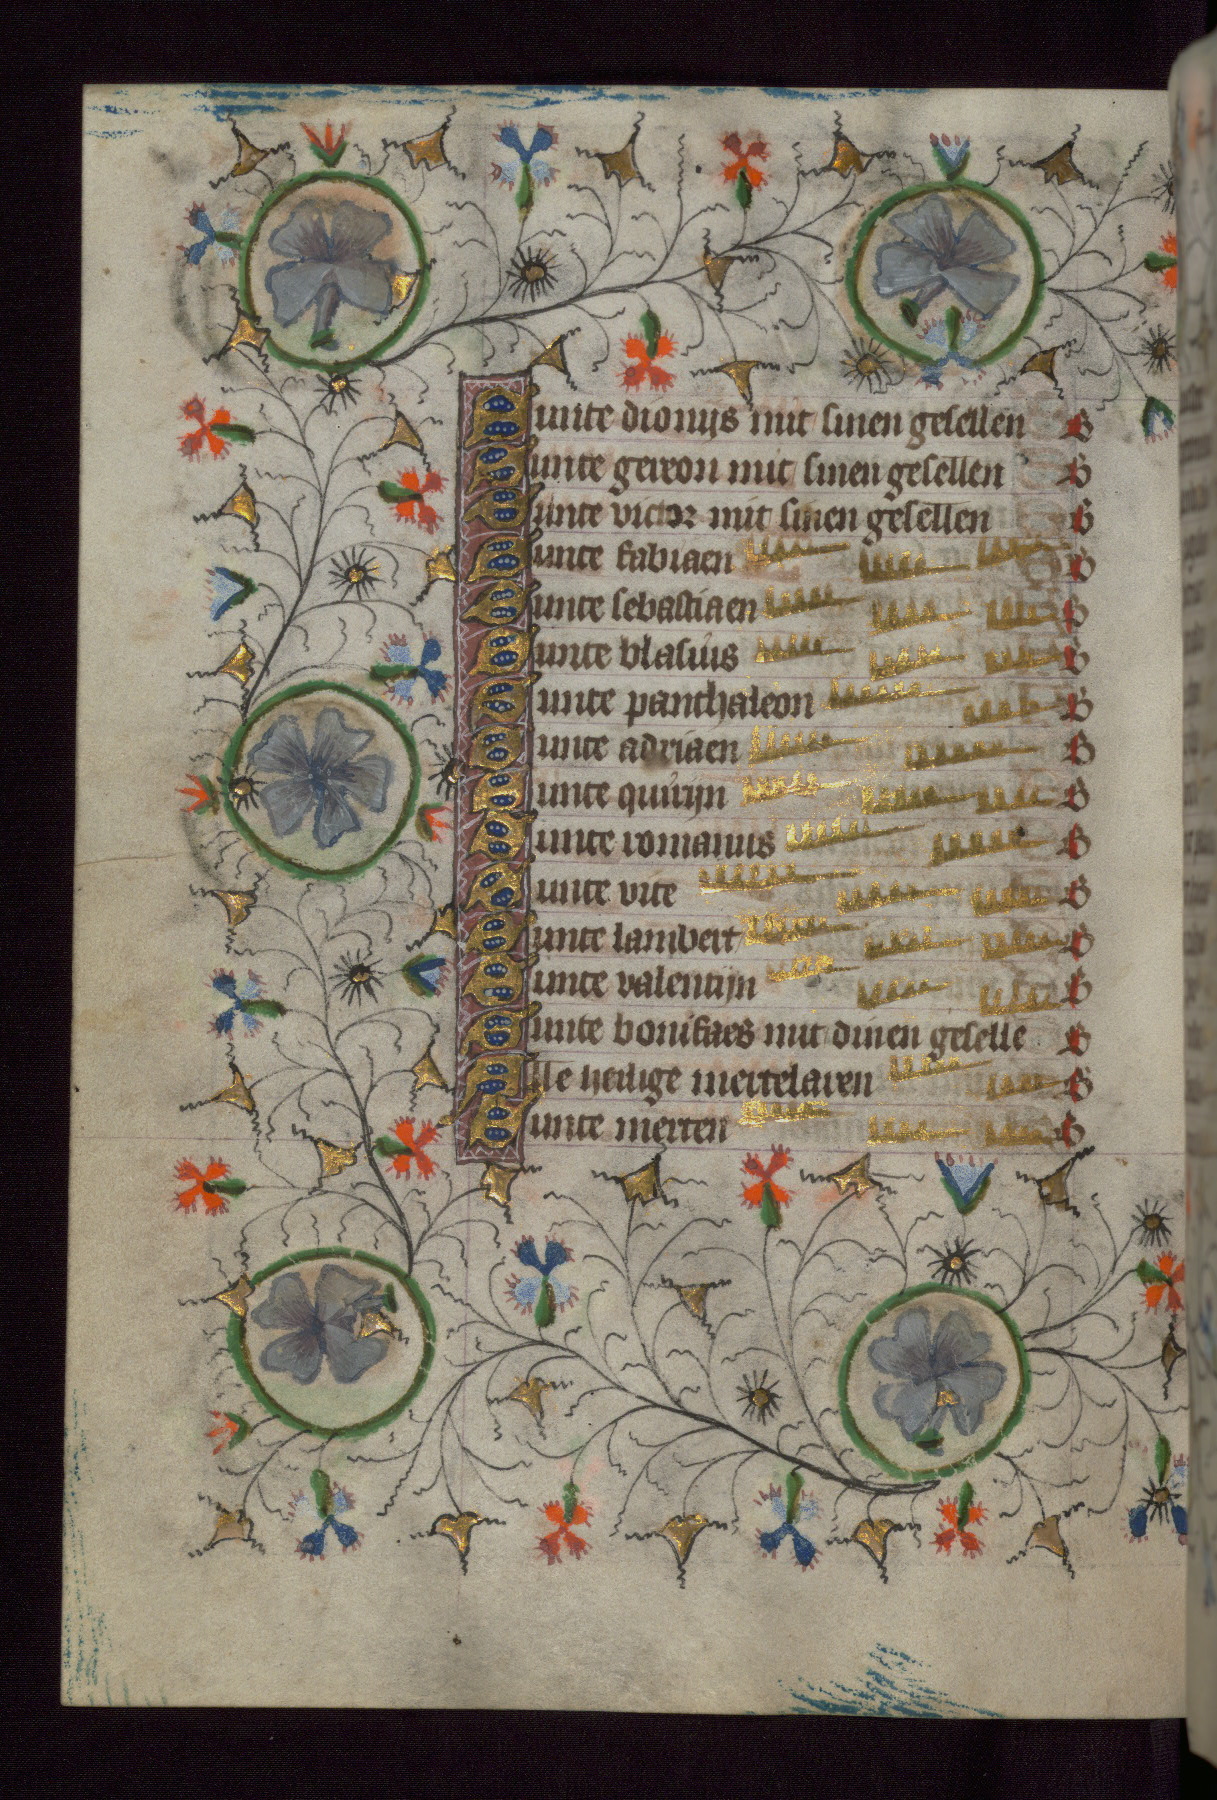 Sunte dionijs mit sinen gesellen B
Sunte gereon mit sinen gesellen B
Sunte victor mit sinen gesellen B
Sunte fabiaen B
Sunte sebastiaen B
Sunte blasius B
Sunte panthaleon B
Sunte adriaen B
Sunte quirijn B
Sunte romanus B
Sunte vite B
Sunte lambert B
Sunte valentijn B
Sunte bonifaes mit dinen geselle B
Alle heilige mertelaren B
Sunte merten B